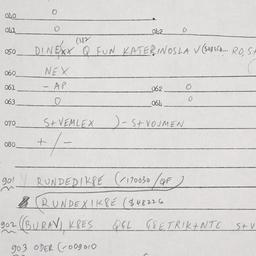 040 0
041 0 042 0
050 DINEXX Q FUN KATERINOSLAV
060 NEX
061 - AP 062 0
063 0 064 0
070 S+VEMLEX )-S+VOJMEN
080 +/-
901 RUNDEDIK8E (-170030/QF)
RUNDEXIK8E ($48226
902 (BURAV), K8ES Q8L G8ETRIK+NTC S+V
903 ODER (-009010